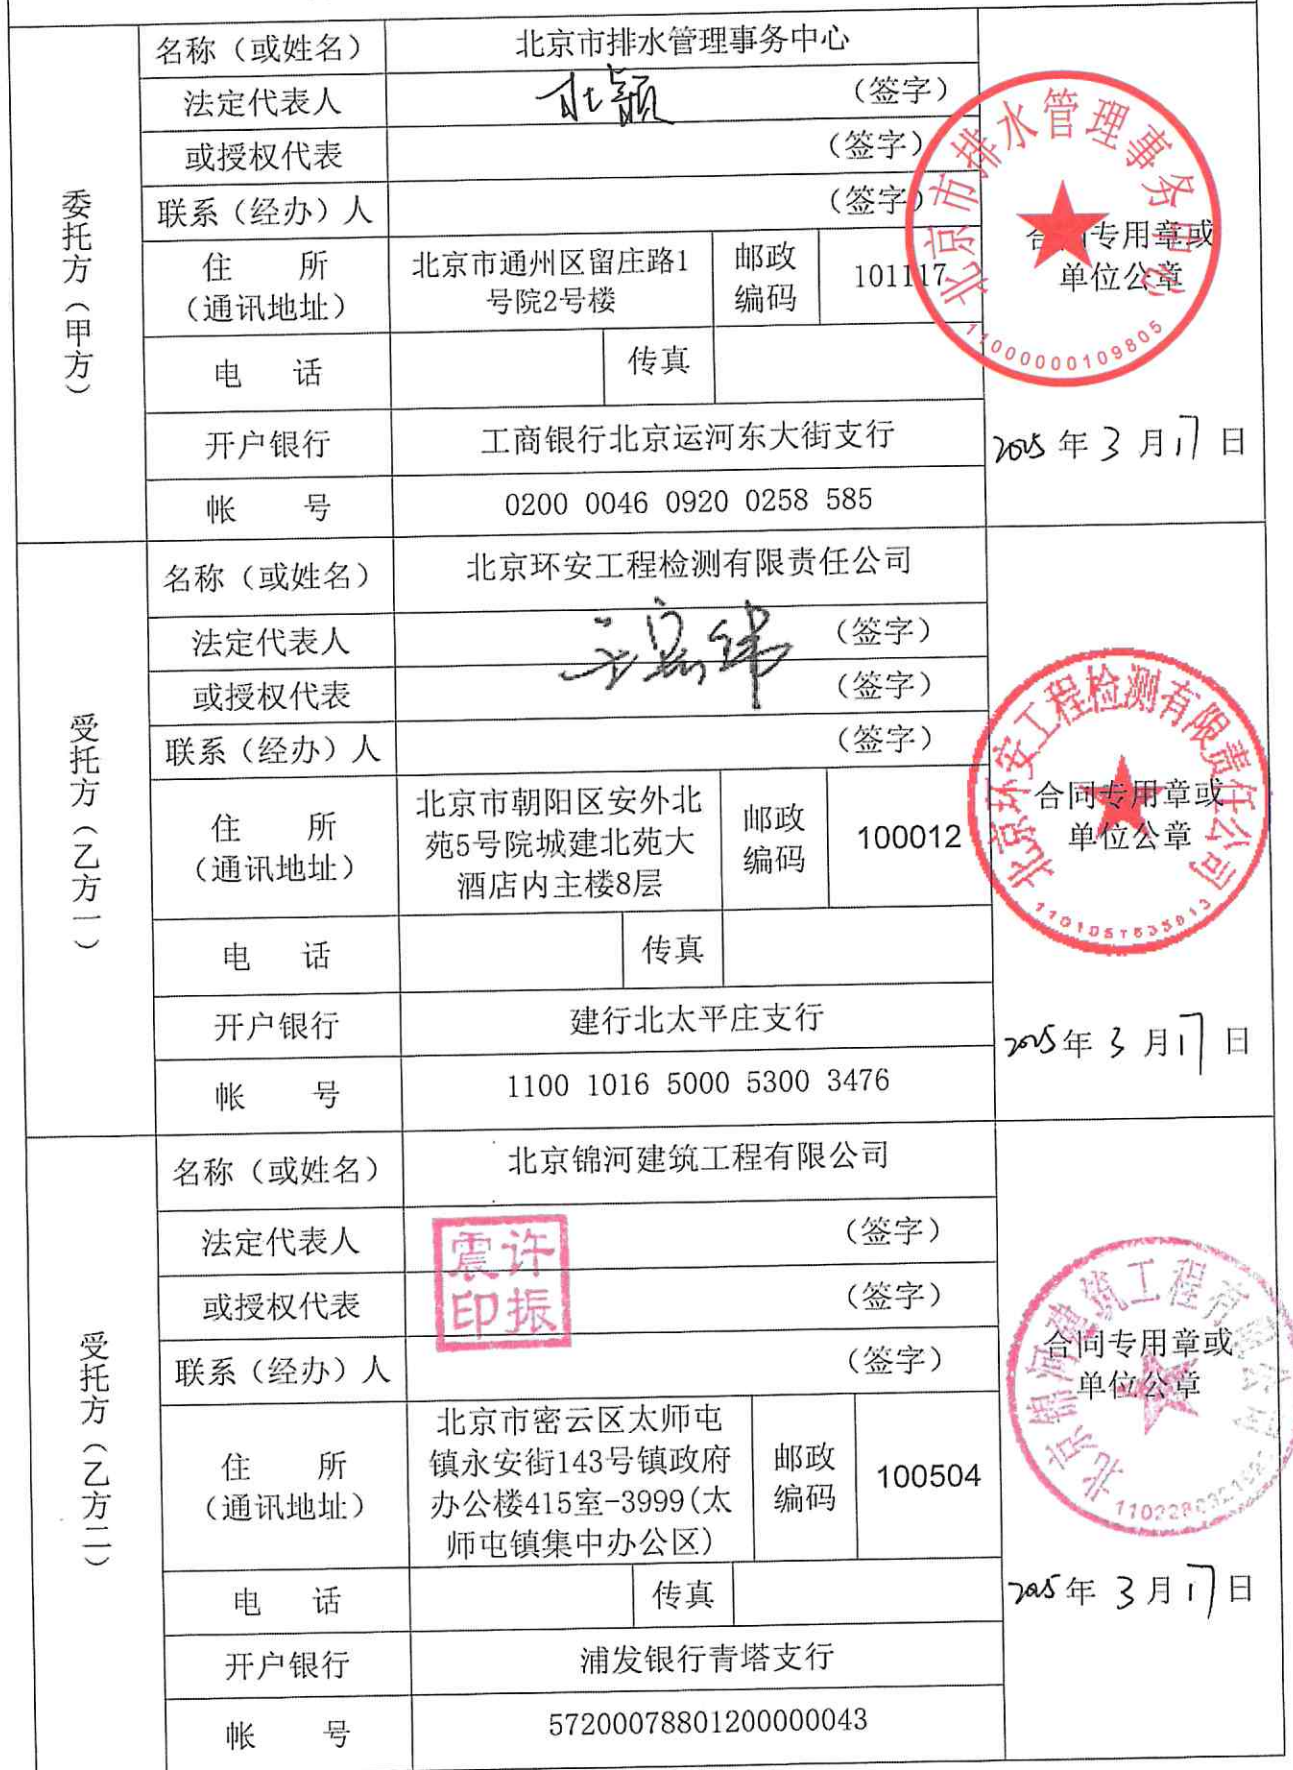 委托方（甲方）
名称（或姓名）
北京市排水管理事务中心
法定代表人
（签字）
或授权代表
（签字）
联系（经办）人
（签字）
住 所
（通讯地址）
北京市通州区留庄路1
号院2号楼
邮政
编码
101117
电 话
传真
开户银行
工商银行北京运河东大街支行
帐 号
0200 0046 0920 0258 585
北京市排水管理事务中心
合同专用章或
单位公章
110000000109805
2025年3月17日
受托方（乙方一）
名称（或姓名）
北京环安工程检测有限责任公司
法定代表人
（签字）
或授权代表
（签字）
联系（经办）人
（签字）
住 所
（通讯地址）
北京市朝阳区安外北
苑5号院城建北苑大
酒店内主楼8层
邮政
编码
100012
电 话
传真
开户银行
建行北太平庄支行
帐 号
1100 1016 5000 5300 3476
北京环安工程检测有限责任公司
合同专用章或
单位公章
2025年3月17日
受托方（乙方二）
名称（或姓名）
北京锦河建筑工程有限公司
法定代表人
（签字）
许振
震印
或授权代表
（签字）
联系（经办）人
（签字）
住 所
（通讯地址）
北京市密云区太师屯
镇永安街143号镇政府
办公楼415室-3999(太
师屯镇集中办公区)
邮政
编码
100504
电 话
传真
开户银行
浦发银行青塔支行
帐 号
57200078801200000043
北京锦河建筑工程有限公司
合同专用章或
单位公章
2025年3月17日